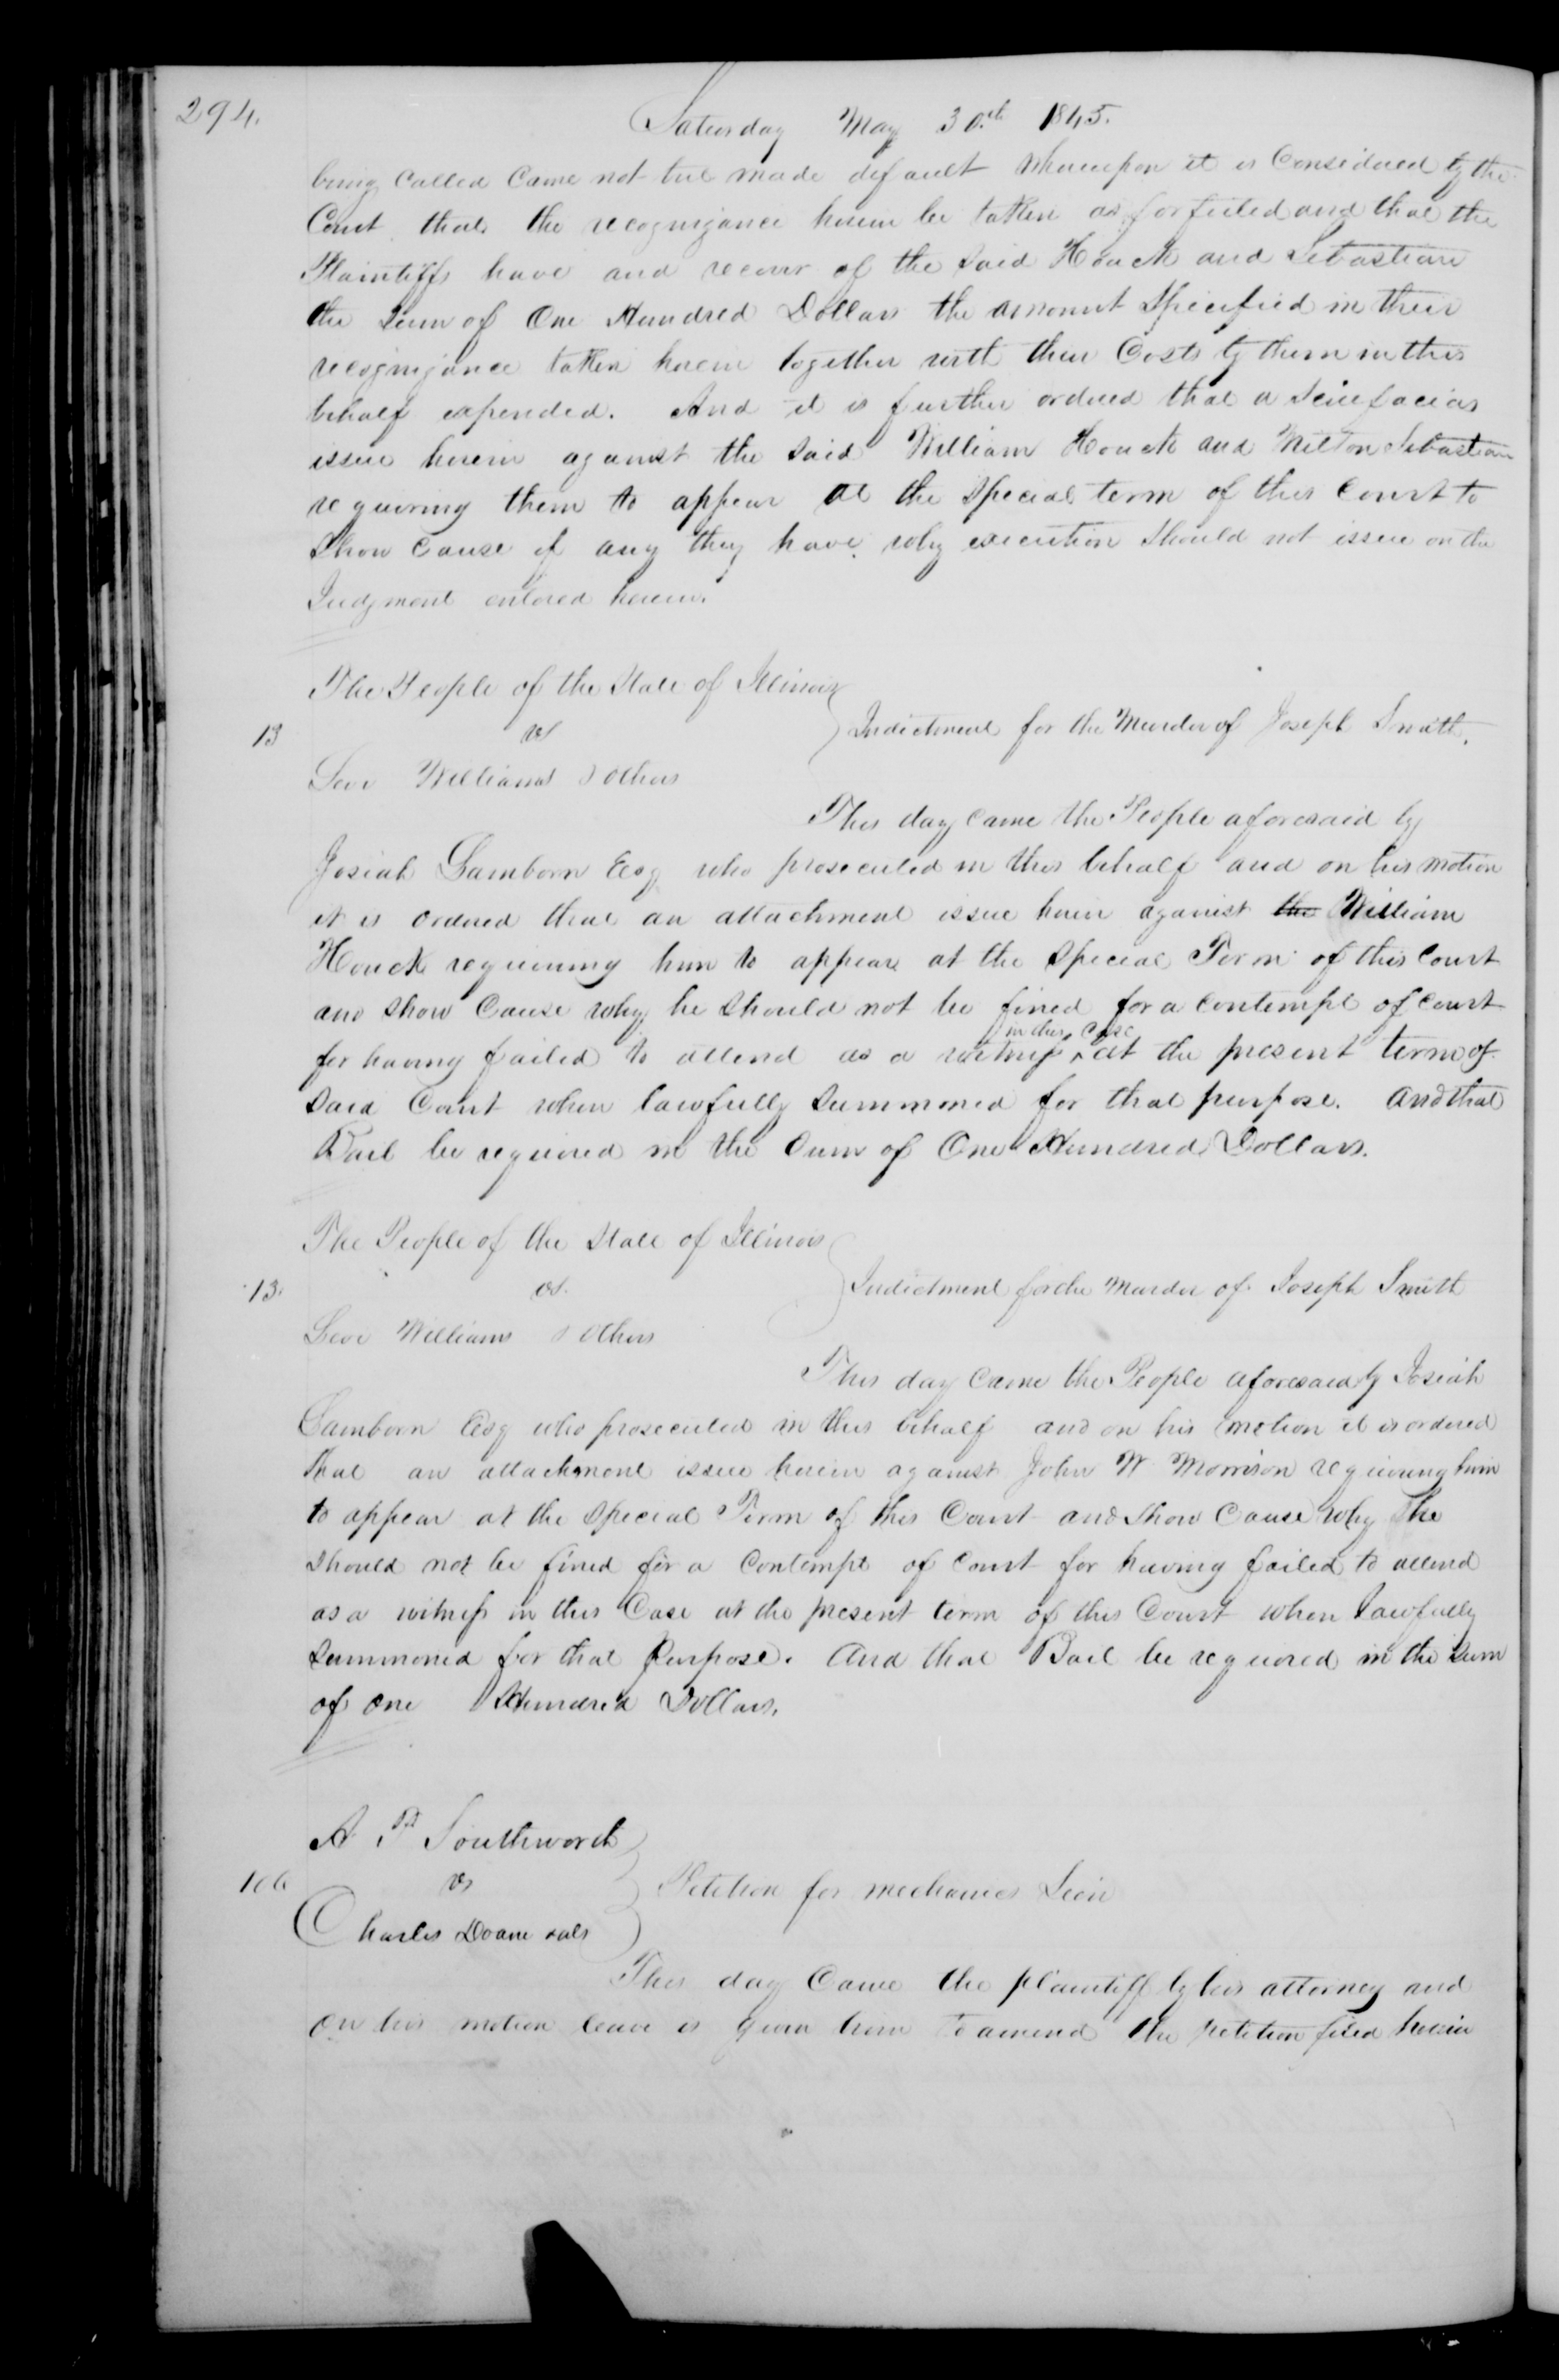 294.
Saturday May 30.th 1845.
being called came not but made default whereupon it is Considered by the
Court that the recognizance herein be taken as forfeited and that the
Plaintiffs have and recover of the said Houck and Sebastian
the sum of One Hundred Dollars the amount Specified in their
recognizance taken herein together with their Costs by them in this
behalf expended. And it is further ordered that a Scirefacias
issue herein against the said William Houck and Milton Sebastian
requiring them to appear at the special term of this Court to
Show Cause if any they have why execution should not issue on the
Judgment entered herein.
The People of the State of Illinois
13 vs Indictment for the Murder of Joseph Smith.
Levi Williams & others
This day came the People aforesaid by
Josiah Lamborn Esq who prosecuted in this behalf and on his motion
it is ordered that an attachment issue herein against the William
Houck requiring him to appear at the Special Term of this Court
and show Cause why he should not be fined for a contempt of Court
in this Case
for having failed to attend as a witness ^ at the present term of
said Court when lawfully summoned for that purpose. and that
Bail be required in the Sum of One Hundred Dollars.
The People of the State of Illinois
13. vs. Indictment for the murder of Joseph Smith
Levi Williams & others
This day came the People aforesaid by Josiah
Lamborn Esq who prosecuted in this behalf and on his motion it is ordered
that an attachment issue herein against John W Morrison requiring him
to appear at the Special Term of this Court and Show Cause why he
should not be fined for a Contempt of Court for having failed to attend
as a witness in this Case at the present term of this Court when lawfully
summoned for that Purpose. And that Bail be required in the sum
of one Hundred Dollars.
A P Southworth
106 vs Petition for mechanics Lein
Charles Doane & als
This day Came the plaintiff by his attorney and
on his motion leave is given him to amend the petition filed herein